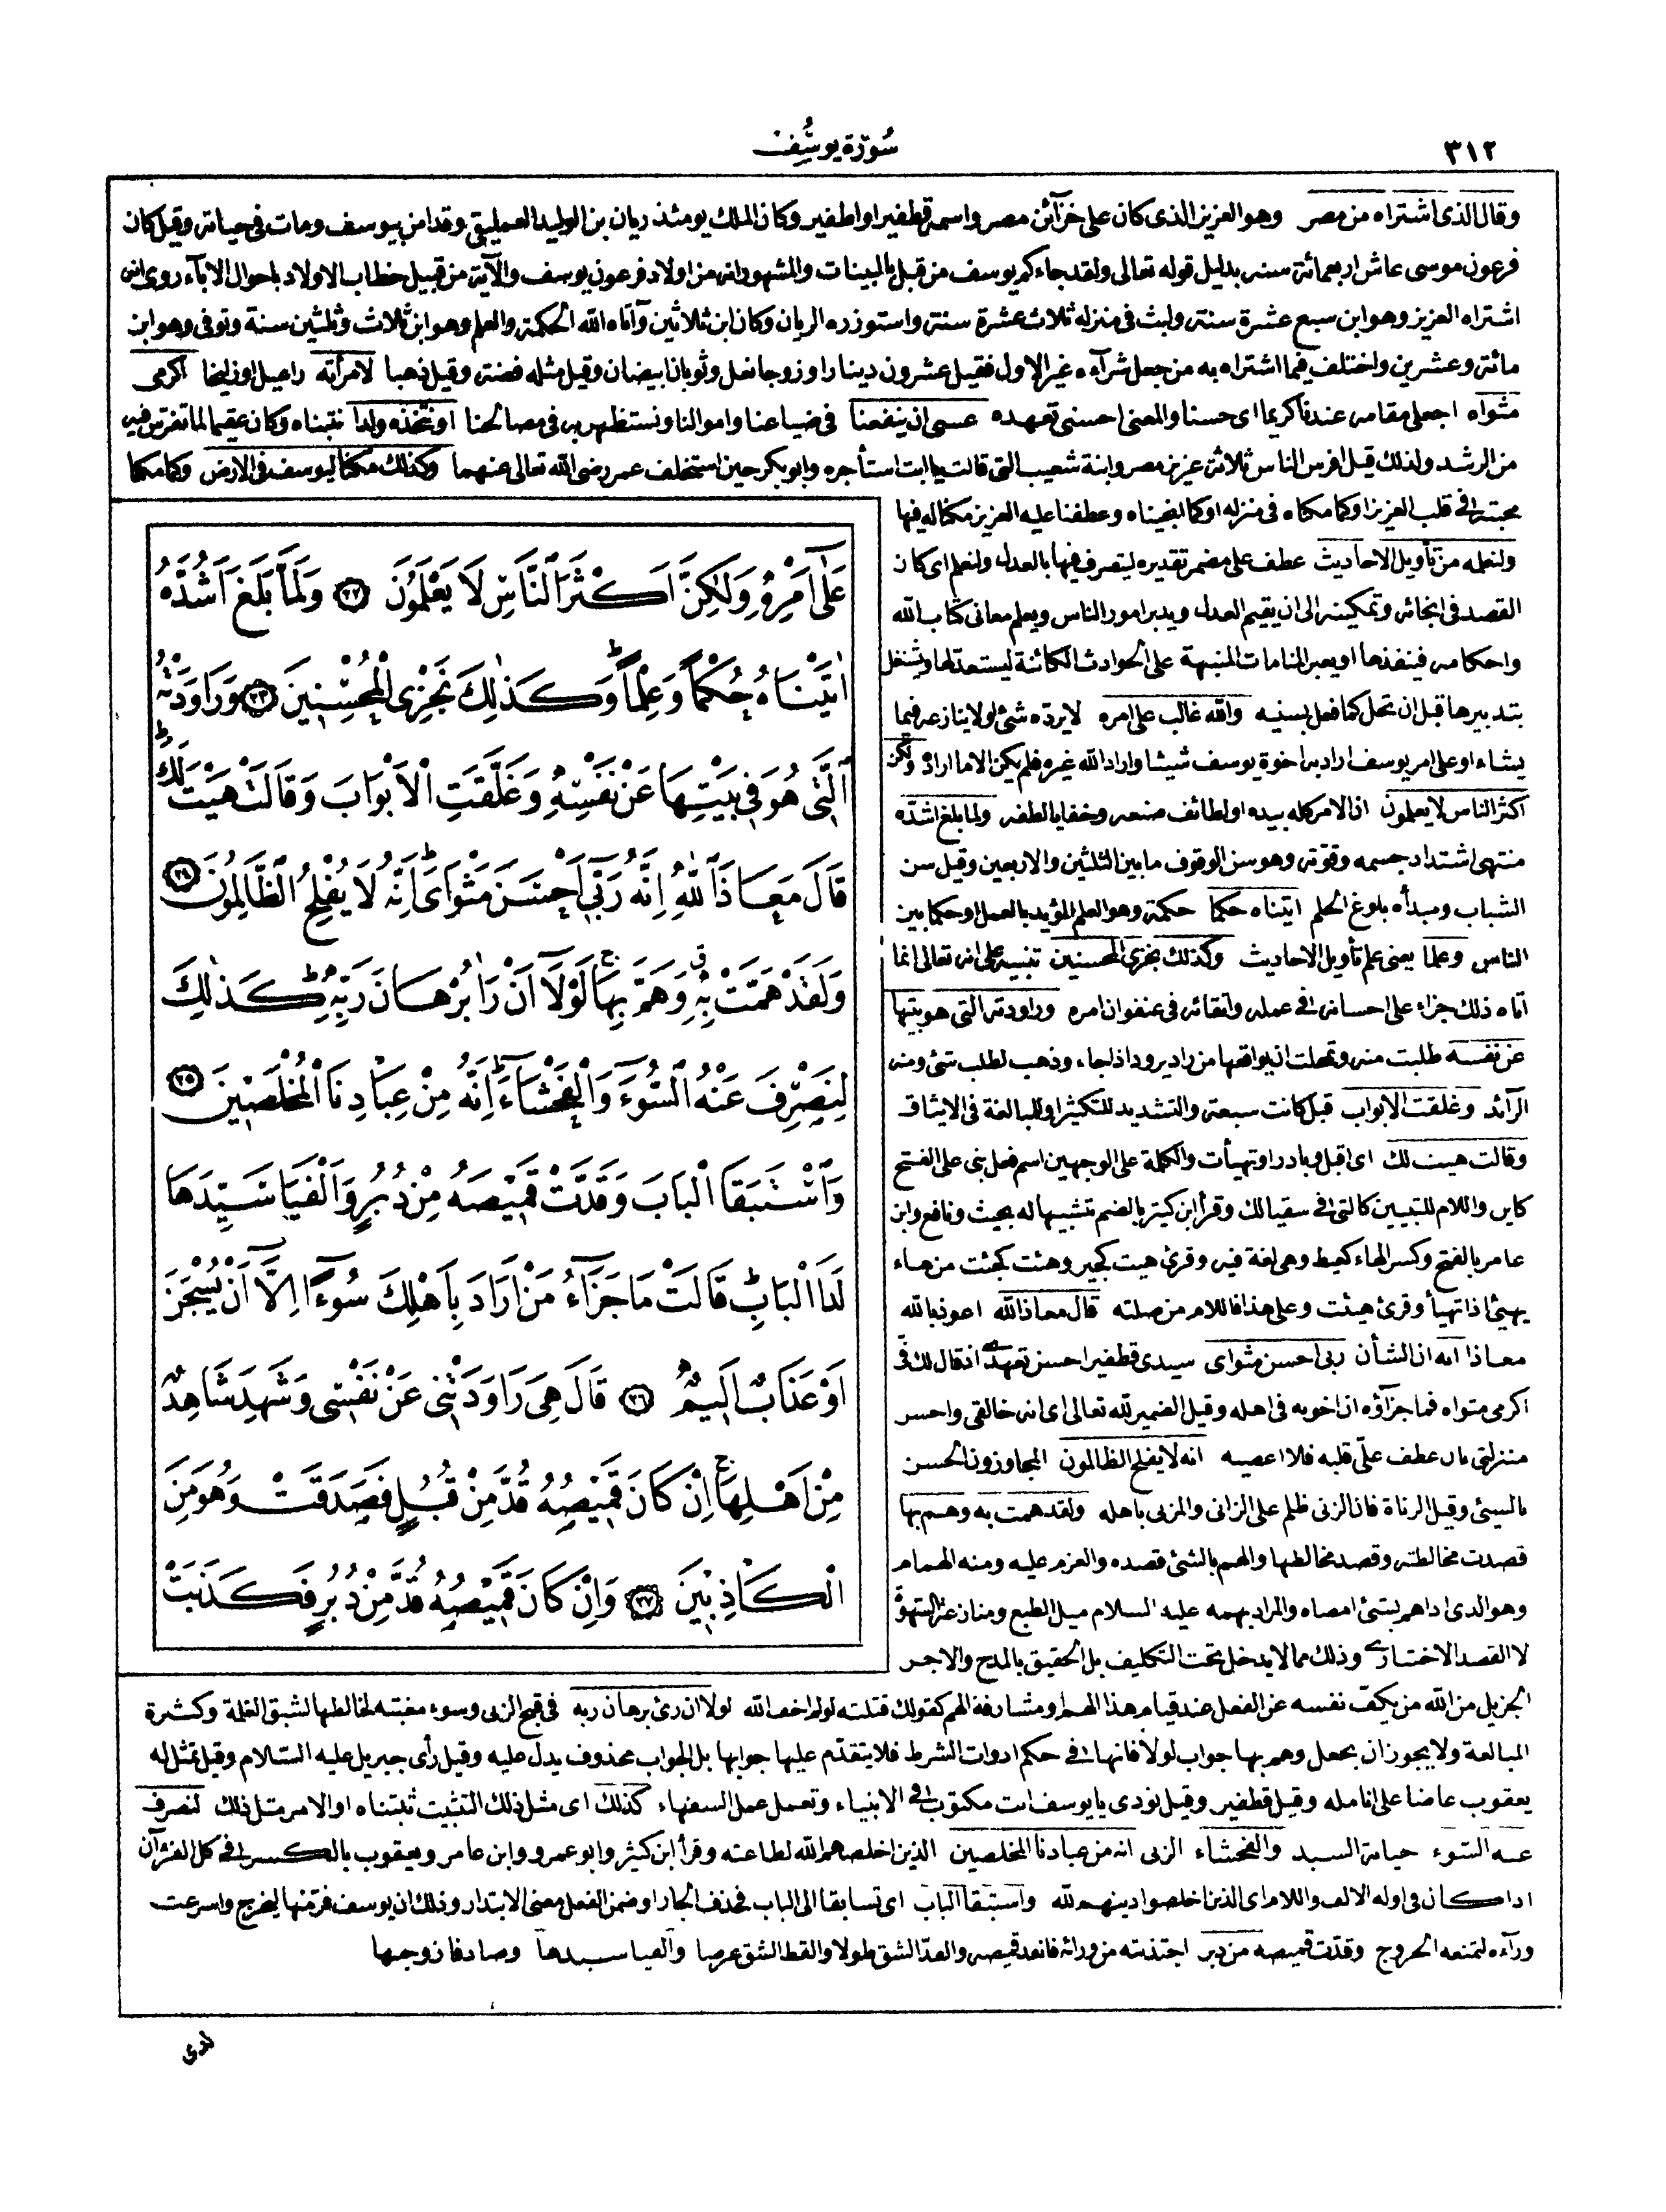 ٣١٢
سورة يوسف
وقال الذى اشتراه من مصر وهو العزيز الذى كان على خزآئن مصر واسمه قطفير او اطفير وكان الملك يومئذ ريان بن الوليد العمليقى وقد امن بيوسف ومات فى حياته وقيل كان
فرعون موسى عاش اربعمائة سنه بدليل قوله تعالى ولقد جاءكم يوسف من قبل بالبينات والمشهور انه من اولاد فرعون يوسف والآية من قبيل خطاب الاولاد باحوال الابآء روى انه
اشتراه العزيز وهو ابن سبع عشرة سنة ولبث فى منزله ثلاث عشرة سنة واستوزره الريان وكان ابن ثلاثين وآتاه الله الحكمة والعلم وهو ابن ثلاث وثلثين سنة وتوفى وهو ابن
مائة وعشرين واختلف فيما اشتراه به من جعل شرآءه غير الاول فقيل عشرون دينارا وزوجا نعل وثوبان ابيضان وقيل مثله فضة وقيل ذهبا لامرأته راعيل او زليخا اكرمى
مثواه اجعلى مقامه عندنا كريما اى حسنا والمعنى احسنى تعهده عسى ان ينفعنا فى ضياعنا واموالنا ونستظهر به فى مصالحنا او نتخذه ولدا نتبناه وكان عقيما لما تفرس فيه
من الرشد ولذلك قيل افرس الناس ثلاثة عزيز مصر وابنة شعيب التى قالت يا ابت استأجره وابو بكر حين استخلف عمر رضى الله تعالى عنهما وكذلك مكنا ليوسف فى الارض وكما مكنا
محبته فى قلب العزيز او كما مكناه فى منزله او كما انجيناه وعطفنا عليه العزيز مكنا له فيها
ولنعلمه من تأويل الاحاديث عطف على مضمر تقديره ليتصرف فيها بالعدل ولنعلم اى كان
القصد فى انجائه وتمكينه الى ان يقيم العدل ويدبر امور الناس ويعلم معانى كتاب الله
واحكامه فينفذها او يعبر المنامات المنبهة على الحوادث الكائنة ليستعد لها ويشتغل
بتدبيرها قبل ان تحل كما فعل بسنيه والله غالب على امره لا يرده شئ او لا ينازعه فيما
يشاء او على امر يوسف اراد به اخوة يوسف شيئا واراد الله غيره فلم يكن الا ما اراده ولكن
اكثر الناس لا يعلمون ان الامر كله بيده او لطائف صنعه وخفايا لطفه ولما بلغ اشده
منتهى اشتداد جسمه وقوته وهو سن الوقوف ما بين الثلثين والاربعين وقيل سن
الشباب ومبدأه بلوغ الحلم اتيناه حكما حكمة وهو العلم المؤيد بالعمل او حكما بين
الناس وعلما يعنى علم تأويل الاحاديث وكذلك نجزى المحسنين تنبيه على انه تعالى انما
آتاه ذلك جزاء على احسانه فى عمله واتقائه فى عنفوان امره وراودته التى هو بيتها
عن نفسه طلبت منه وتمحلت ان يواقعها من راد يرود اذا جاء وذهب لطلب شئ ومنه
الرآئد وغلقت الابواب قيل كانت سبعة والتشديد للتكثير او للمبالغة فى الايثاق
وقالت هيت لك اى اقبل وبادر او تهيأت والكلمة على الوجهين اسم فعل بنى على الفتح
كاين واللام للتبيين كالتى فى سقيا لك وقرأ ابن كثير بالضم تشبيها له بحيث ونافع وابن
عامر بالفتح وكسر الهاء كعيط وهى لغة فيه وقرئ هيت كجير وهئت كجئت من هاء
يهيئ اذا تهيأ وقرئ هيئت وعلى هذا فاللام من صلته قال معاذ الله اعوذ بالله
معاذا انه ان الشأن ربى احسن مثواى سيدى قطفير احسن تعهدى اذ قال لك فى
اكرمى مثواه فما جزآؤه ان اخونه فى اهله وقيل الضمير لله تعالى اى انه خالقى واحسن
منزلتى بان عطف على قلبه فلا اعصيه انه لا يفلح الظالمون المجاوزون الحسن
بالسيئ وقيل الزناة فان الزنى ظلم على الزانى والمزنى باهله ولقد همت به وهم بها
قصدت مخالطته وقصد مخالطتها والهم بالشئ قصده والعزم عليه ومنه الهمام
وهو الذى اذا هم بشئ امضاه والمراد بهمه عليه السلام ميل الطبع ومنازعة الشهوة
لا القصد الاختيارى وذلك مما لا يدخل تحت التكليف بل الحقيق بالمدح والاجر
عَلٰى اَمْرِهِ وَلٰكِنَّ اَكْثَرَ النَّاسِ لَا يَعْلَمُونَ ٢٢ وَلَمَّا بَلَغَ اَشُدَّهُ
اٰتَيْنَاهُ حُكْمًا وَعِلْمًا وَكَذٰلِكَ نَجْزِى الْمُحْسِنِينَ ٢٣ وَرَاوَدَتْهُ
الَّتِى هُوَ فِى بَيْتِهَا عَنْ نَفْسِهِ وَغَلَّقَتِ الْاَبْوَابَ وَقَالَتْ هَيْتَ لَكَ
قَالَ مَعَاذَ اللّٰهِ اِنَّهُ رَبِّى اَحْسَنَ مَثْوَاىَ اِنَّهُ لَا يُفْلِحُ الظَّالِمُونَ ٢٤
وَلَقَدْ هَمَّتْ بِهِ وَهَمَّ بِهَا لَوْلَا اَنْ رَاٰ بُرْهَانَ رَبِّهِ كَذٰلِكَ
لِنَصْرِفَ عَنْهُ السُّوءَ وَالْفَحْشَاءَ اِنَّهُ مِنْ عِبَادِنَا الْمُخْلَصِينَ ٢٥
وَاسْتَبَقَا الْبَابَ وَقَدَّتْ قَمِيصَهُ مِنْ دُبُرٍ وَاَلْفَيَا سَيِّدَهَا
لَدَا الْبَابِ قَالَتْ مَا جَزَاءُ مَنْ اَرَادَ بِاَهْلِكَ سُوءًا اِلَّا اَنْ يُسْجَنَ
اَوْ عَذَابٌ اَلِيمٌ ٢٦ قَالَ هِىَ رَاوَدَتْنِى عَنْ نَفْسِى وَشَهِدَ شَاهِدٌ
مِنْ اَهْلِهَا اِنْ كَانَ قَمِيصُهُ قُدَّ مِنْ قُبُلٍ فَصَدَقَتْ وَهُوَ مِنَ
الْكَاذِبِينَ ٢٧ وَاِنْ كَانَ قَمِيصُهُ قُدَّ مِنْ دُبُرٍ فَكَذَبَتْ
الجزيل من الله من يكف نفسه عن الفعل عند قيام هذا الهم او مشارفة الهم كقولك قتلته لو لم اخف الله لولا ان رئ برهان ربه فى قبح الزنى وسوء مغبته لخالطها لشبق الغلمة وكثرة
المبالغة ولا يجوز ان يجعل وهم بها جواب لولا فانها فى حكم ادوات الشرط فلا يتقدم عليها جوابها بل الجواب محذوف يدل عليه وقيل رأى جبريل عليه السلام وقيل تمثل له
يعقوب عاضا على انامله وقيل قطفير وقيل نودى يا يوسف انت مكتوب فى الانبياء وتعمل عمل السفهاء كذلك اى مثل ذلك التثبيت ثبتناه او الامر مثل ذلك لنصرف
عنه السوء خيانة السيد والفحشاء الزنى انه من عبادنا المخلصين الذين اخلصهم الله لطاعته وقرأ ابن كثير وابو عمرو وابن عامر ويعقوب بالكسر فى كل القرآن
اذا كان فى اوله الالف واللام اى الذين اخلصوا دينهم لله واستبقا الباب اى تسابقا الى الباب فحذف الجار او ضمن الفعل معنى الابتدار وذلك ان يوسف فر منها ليخرج واسرعت
ورآءه لتمنعه الخروج وقدت قميصه من دبر اجتذبته من ورائه فانقد قميصه والقد الشق طولا والقط الشق عرضا والفيا سيدها وصادفا زوجها
لدى